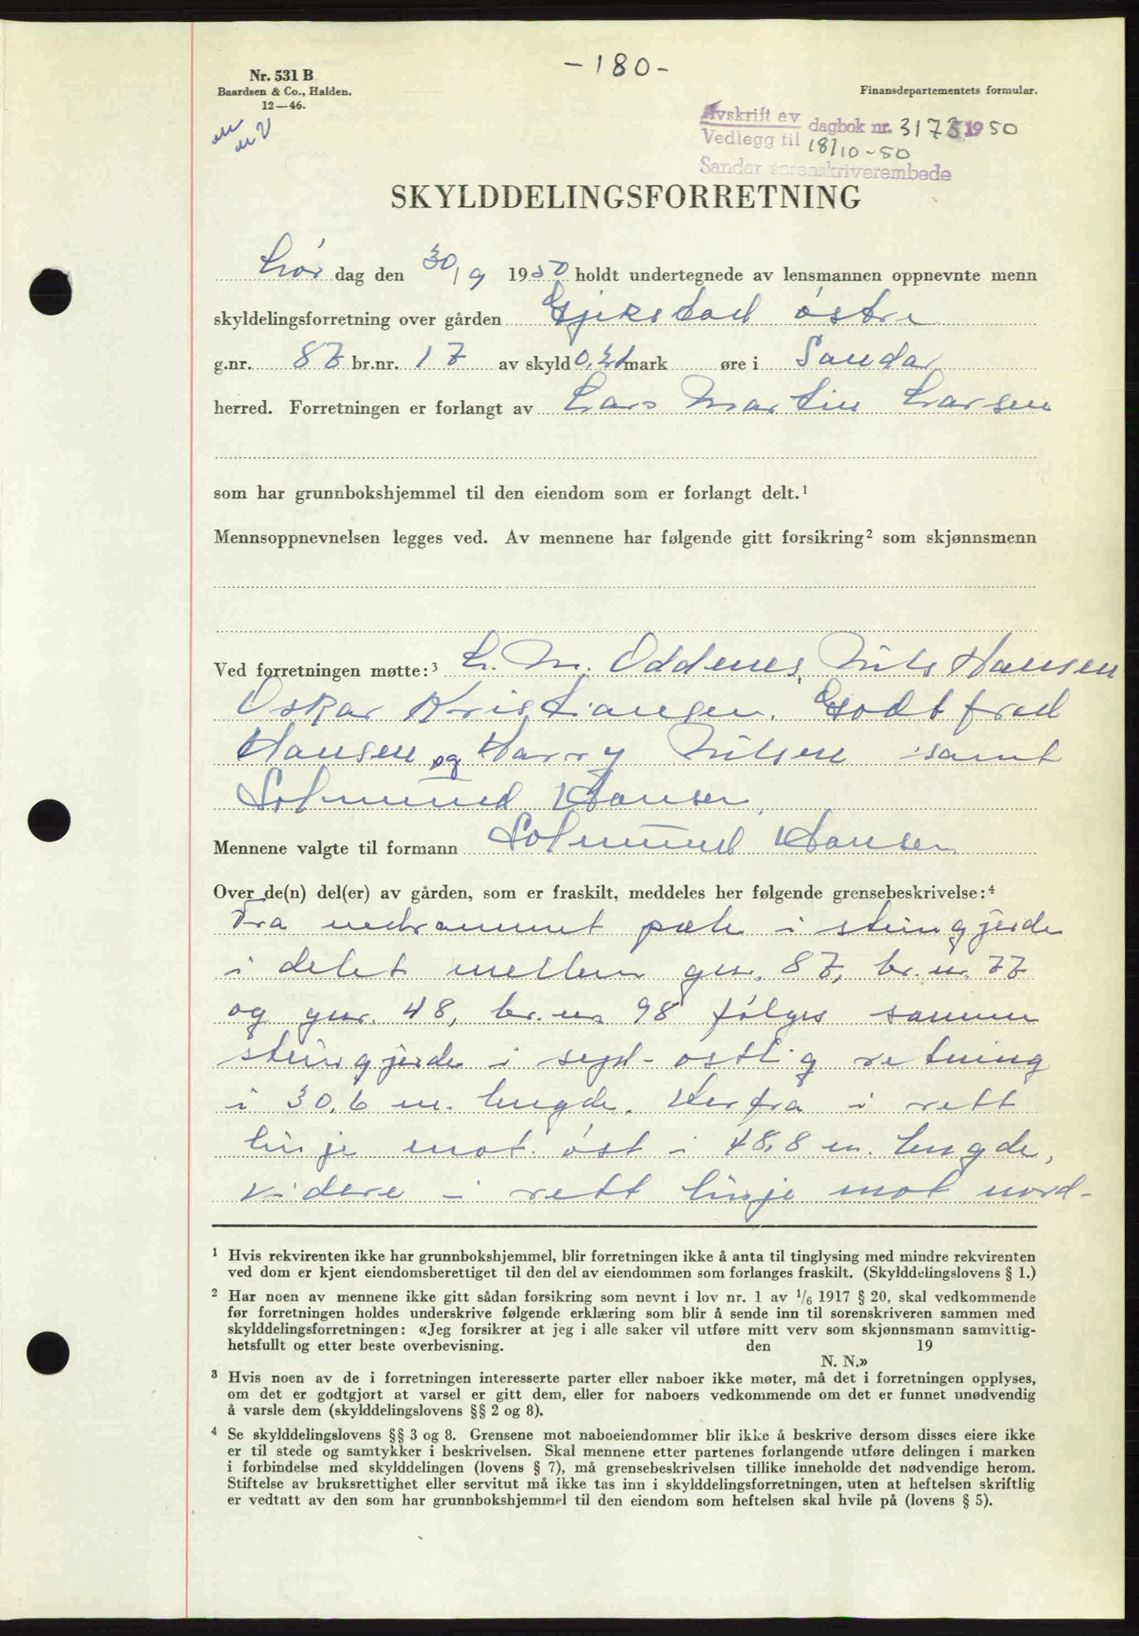 - 180 -
Nr. 531 B
Baardsen & Co., Halden.
12—46.
Finansdepartementets formular.
Avskrift av
Vedlegg til
dagbok nr. 3173 1950
18/10-50
Sandar sorenskriverembede
SKYLDDELINGSFORRETNING
Lør dag den 30/9 1950 holdt undertegnede av lensmannen oppnevnte menn
skyldelingsforretning over gården Gjekstad østre
g.nr. 87 br.nr. 17 av skyld 0,21 mark øre i Sandar
herred. Forretningen er forlangt av Lars Martin Larsen
som har grunnbokshjemmel til den eiendom som er forlangt delt.¹
Mennsoppnevnelsen legges ved. Av mennene har følgende gitt forsikring² som skjønnsmenn
Ved forretningen møtte:³ L. M. Oddenes, Nils Hansen
Oskar Kristiansen, Godtfred
Hansen og Harry Nilsen samt
Solmund Hansen,
Mennene valgte til formann Solmund Hansen
Over de(n) del(er) av gården, som er fraskilt, meddeles her følgende grensebeskrivelse:⁴
Fra nedrammet pæle i steingjerde
i delet mellem gnr. 87, br.nr. 77
og gnr. 48, br.nr 98 følges samme
steingjerde i syd-østlig retning
i 30,6 m. lengde. Herfra i rett
linje mot øst i 48,8 m. lengde,
videre i rett linje mot nord-
¹ Hvis rekvirenten ikke har grunnbokshjemmel, blir forretningen ikke å anta til tinglysing med mindre rekvirenten
ved dom er kjent eiendomsberettiget til den del av eiendommen som forlanges fraskilt. (Skylddelingslovens § 1.)
² Har noen av mennene ikke gitt sådan forsikring som nevnt i lov nr. 1 av 1/6 1917 § 20, skal vedkommende
før forretningen holdes underskrive følgende erklæring som blir å sende inn til sorenskriveren sammen med
skylddelingsforretningen: «Jeg forsikrer at jeg i alle saker vil utføre mitt verv som skjønnsmann samvittig-
hetsfullt og etter beste overbevisning. den 19
N. N.»
³ Hvis noen av de i forretningen interesserte parter eller naboer ikke møter, må det i forretningen opplyses,
om det er godtgjort at varsel er gitt dem, eller for naboers vedkommende om det er funnet unødvendig
å varsle dem (skylddelingslovens §§ 2 og 8).
⁴ Se skylddelingslovens §§ 3 og 8. Grensene mot naboeiendommer blir ikke å beskrive dersom disses eiere ikke
er til stede og samtykker i beskrivelsen. Skal mennene etter partenes forlangende utføre delingen i marken
i forbindelse med skylddelingen (lovens § 7), må grensebeskrivelsen tillike inneholde det nødvendige herom.
Stiftelse av bruksrettighet eller servitut må ikke tas inn i skylddelingsforretningen, uten at heftelsen skriftlig
er vedtatt av den som har grunnbokshjemmel til den eiendom som heftelsen skal hvile på (lovens § 5).